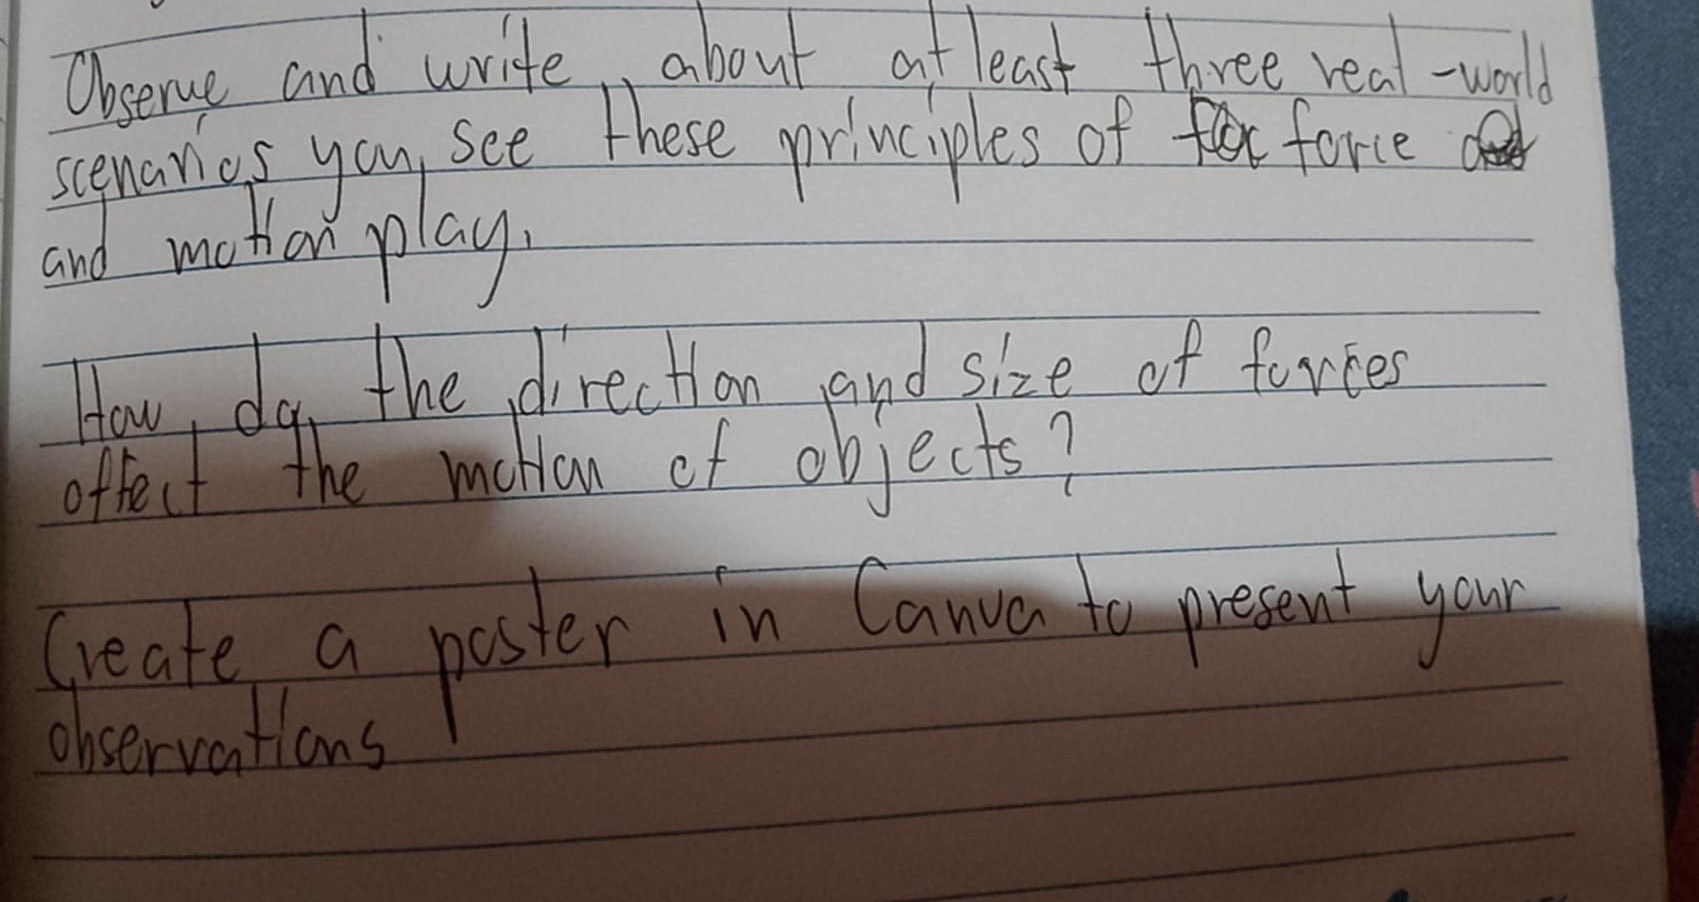 Observe and write about at least three real-world
scenarios you see these principles of force
and motion play.
How do the direction and size of forces
affect the motion of objects?
Create a poster in Canva to present your
observations